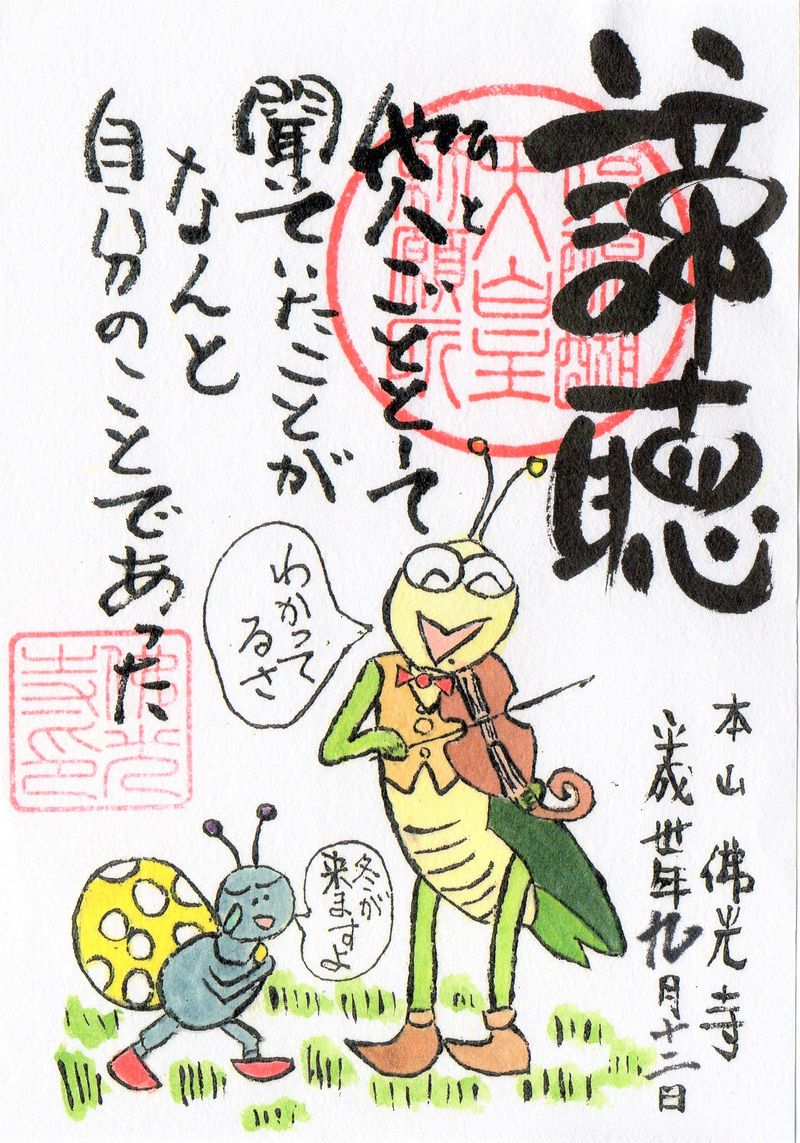 諦聴
ひと
他人ごととして
聞いていたことが
なんと
自分のことであった
本山 佛光寺
平成丗年九月十二日
わかって
るさ
冬が
来ますよ
天皇
佛光
寺印